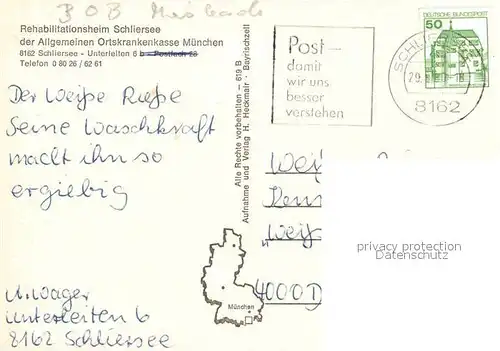 BOB Miesbach
Rehabilitationsheim Schliersee
der Allgemeinen Ortskrankenkasse München
8162 Schliersee - Unterleiten 6 b - Postfach 28
Telefon 0 80 26 / 62 61
Der Weiße Rieße
Seine Waschkraft
macht ihn so
ergiebig
U. Wager
Unterleiten 6
8162 Schliersee
Alle Rechte vorbehalten - 619 B
Aufnahme und Verlag H. Heckmair · Bayrischzell
München
Post -
damit
wir uns
besser
verstehen
29.
8162
50
DEUTSCHE BUNDESPOST
4000 D
privacy protection
Datenschutz.